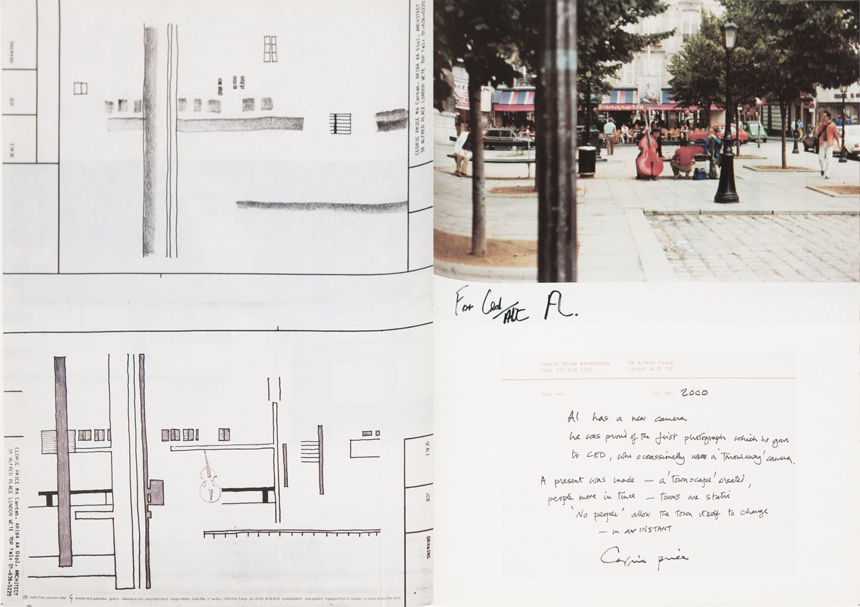 DRAWING
JOB
SCALE
CEDRIC PRICE MA Cantab. ARIBA AA Dipl. ARCHITECT
38 ALFRED PLACE LONDON WC1E 7DP Tel: 01-636-5220
Bonaparte
For Ced
Al.
Cedric Price Architects
38 Alfred Place
London WC1E 7DP
Your ref:
Our ref: 2000
Al has a new camera
he was proud of the first photograph which he gave
to CED, who occassionally uses a 'throwaway' camera.
A present was made — a 'townscape' created,
people move in time — towns are static
'No people' allow the town itself to change
— in an INSTANT
Cedric Price
SCALE
JOB
DRAWING
CEDRIC PRICE MA Cantab. ARIBA AA Dipl. ARCHITECT
38 ALFRED PLACE LONDON WC1E 7DP Tel: 01-636-5220